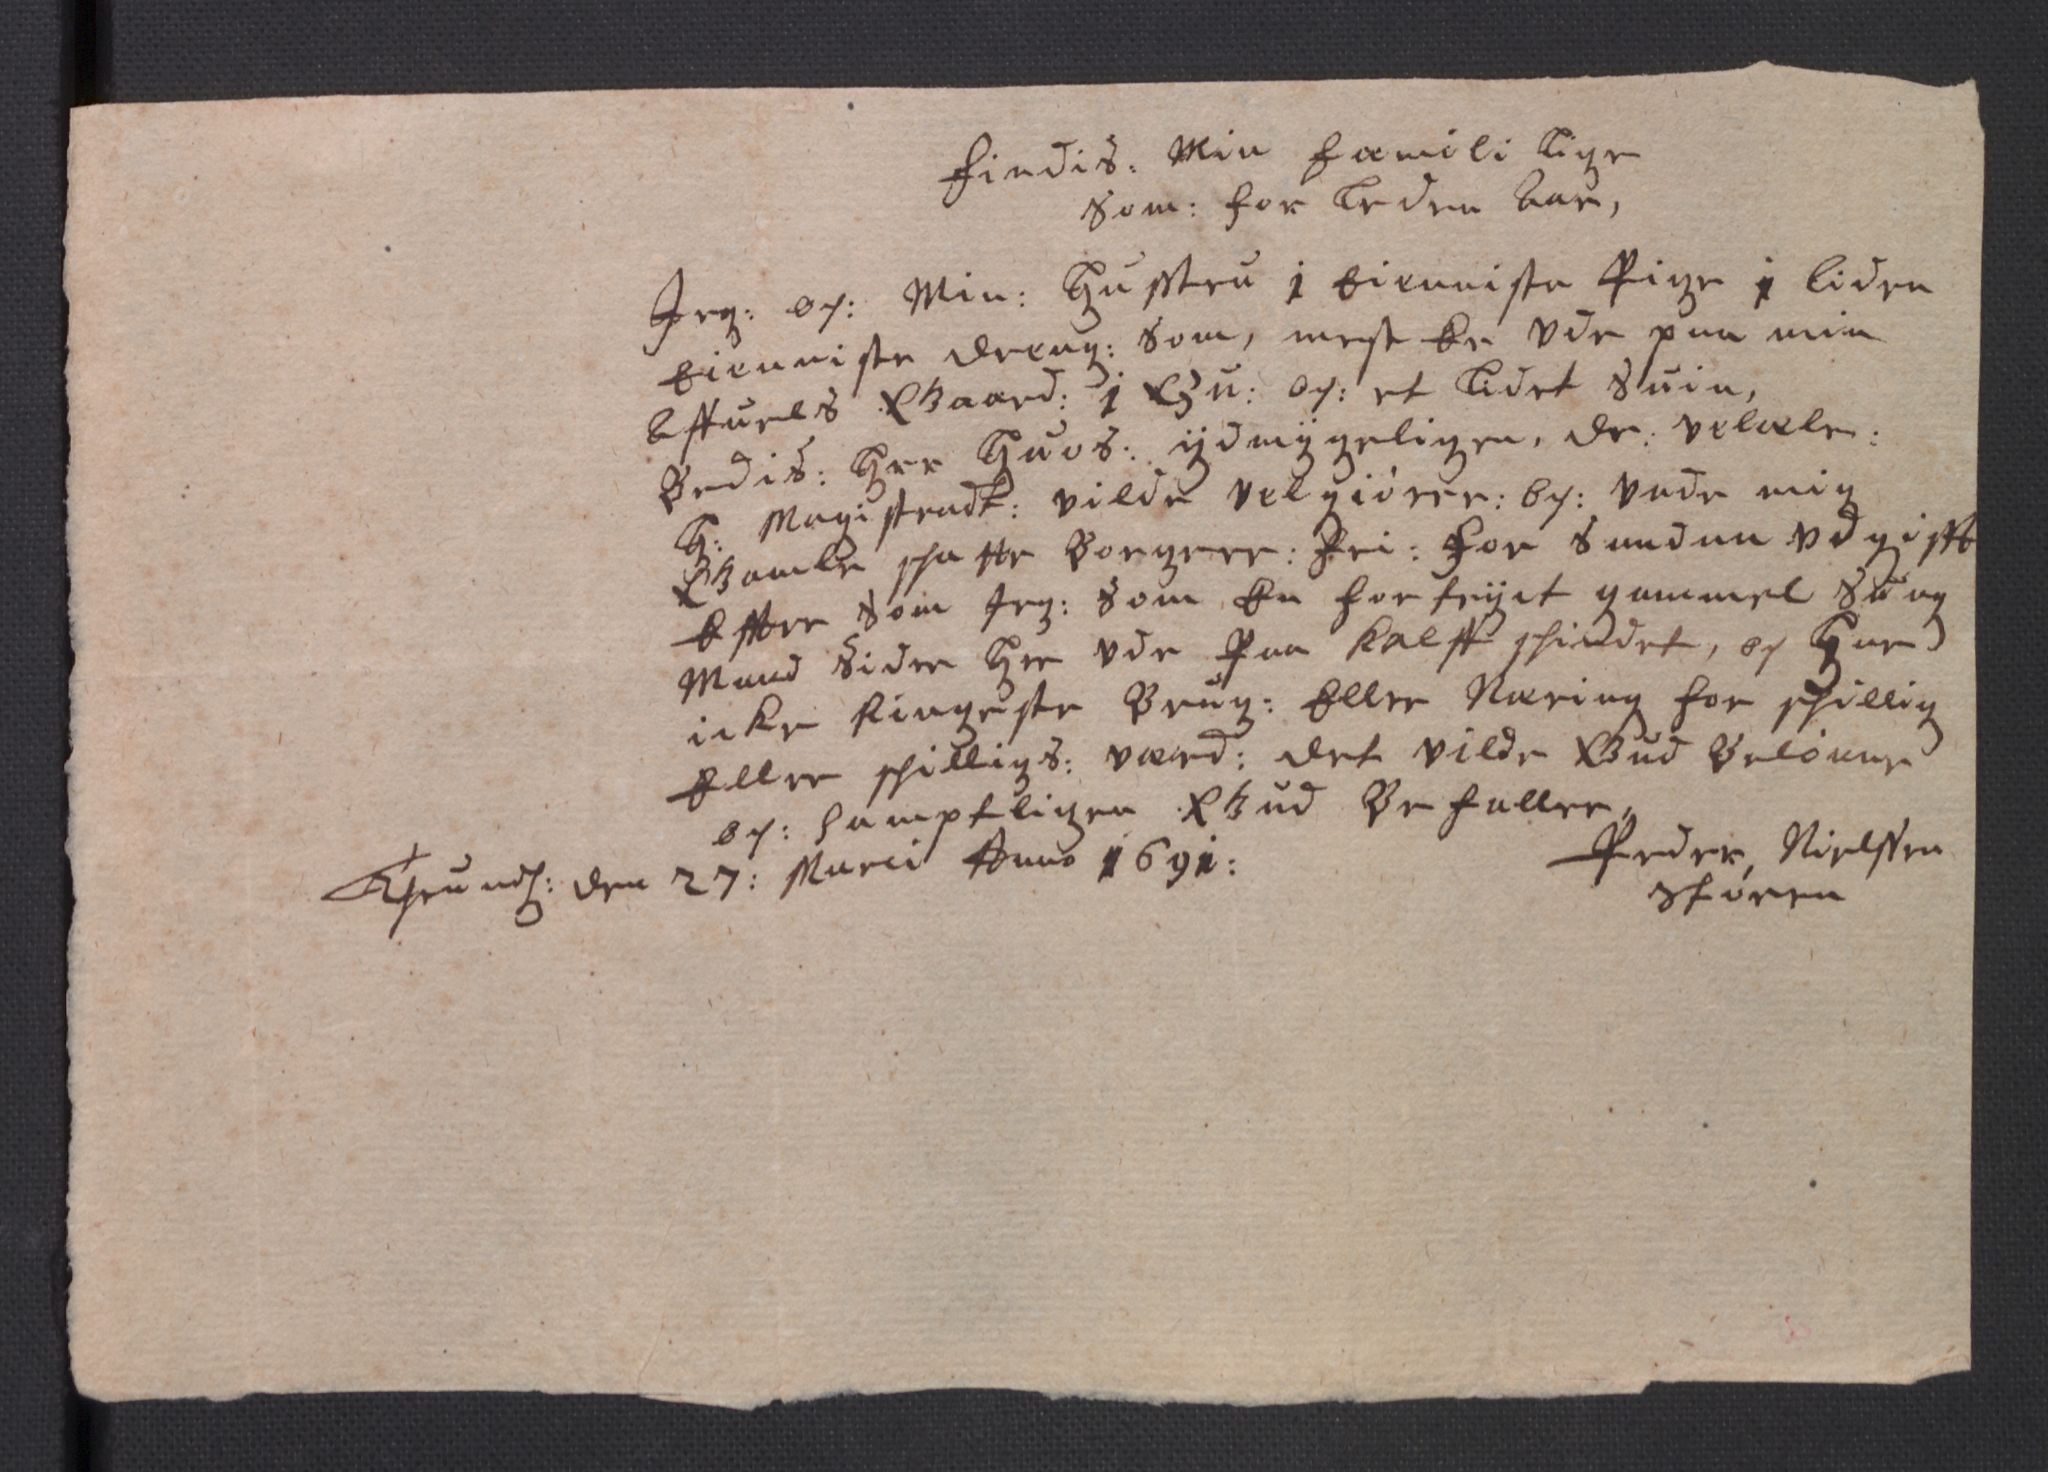 findis: Min famili lige
som: for leden Aar,
Jeg: og: Min: Husstru 1 tienniste Pige 1 liden
tienniste dreng: som, mest Er Vde paa min
Affuels Gaard: 1 Ku: og: et lidet Suin,
Bedis: her huos: ÿdmÿgeligen, de: velædle:
H: Magistradt: vilde velgiörer: og: vnde mig
Gamle schatte Borgere: fri: for saadan vdgifft
Effter som Jeg: som En fortrÿct gammel Suag
Mand sider her vde Paa Kalffschindet, og har
icke Ringeste Brug: Eller Næring for schillig
Eller schilligs: værd: det vilde Gud Belönne
og: samptligen Gud Befaller,
Thrundh: den 27: Marci Anno 1691:
Peder Nielssen
Stören